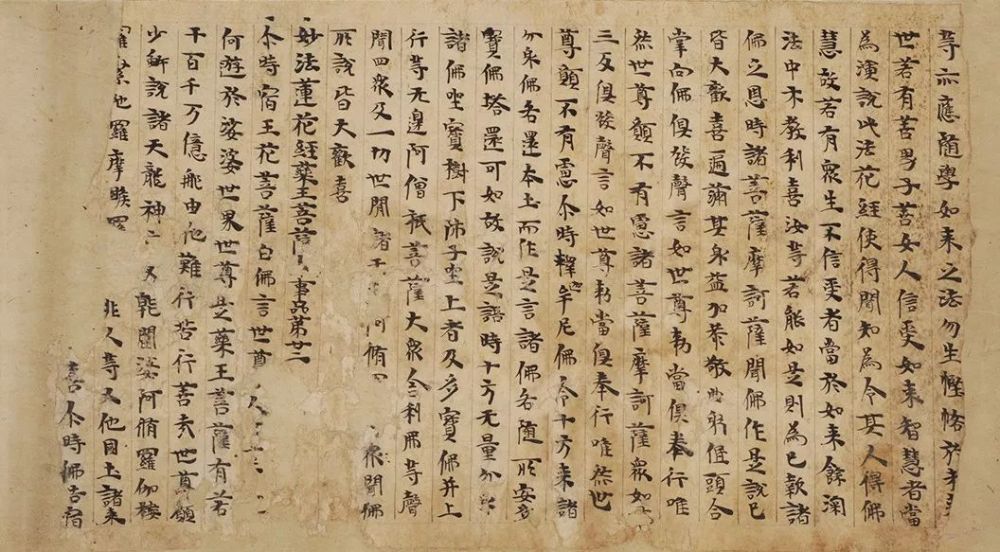 等亦應隨學如来之法勿生慳悋於未来
世若有善男子善女人信受如来智慧者當
為演說此法花經使得聞知為令其人得佛
慧故若有衆生不信受者當於如来餘深
法中示教利喜汝等若能如是則為已報諸
佛之恩時諸菩薩摩訶薩聞佛作是說已
皆大歡喜遍滿其身益加恭敬曲躬低頭合
掌向佛俱發聲言如世尊勑當俱奉行唯
然世尊願不有慮諸菩薩摩訶薩衆如是
三反俱發聲言如世尊勑當俱奉行唯然世
尊願不有慮尒時釋迦牟尼佛令十方来諸
分身佛各還本土而作是言諸佛各随所安多
寶佛塔還可如故說是語時十方无量分身
諸佛坐寶樹下師子座上者及多寶佛并上
行等无邊阿僧祇菩薩大衆舍利弗等聲
聞四衆及一切世間諸天 阿脩 衆聞佛
所說皆大歡喜
妙法蓮花經藥王菩薩 事品第廿三
尒時宿王花菩薩白佛言世尊
何遊於娑婆世界世尊是藥王菩薩有若
干百千万億那由他難行苦行善哉世尊願
少解說諸天龍神 叉乾闥婆阿脩羅伽樓
羅緊他羅摩睺羅 非人等又他國土諸来
喜尒時佛告宿